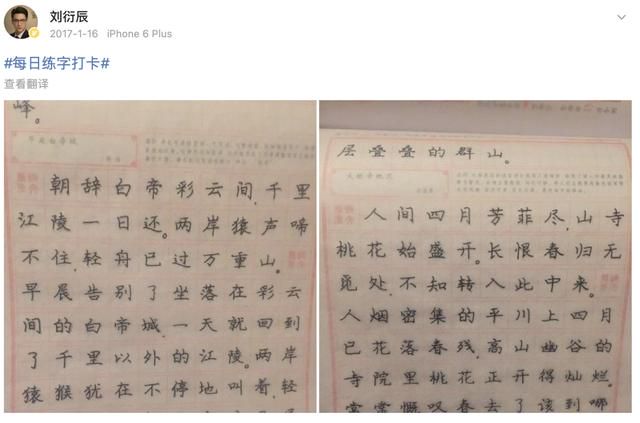 刘衍辰
2017-1-16 iPhone 6 Plus
#每日练字打卡#
查看翻译
峰。
早发白帝城
朝辞白帝彩云间,千里
江陵一日还。两岸猿声啼
不住,轻舟已过万重山。
早晨告别了坐落在彩云
间的白帝城,一天就回到
了千里以外的江陵。两岸
猿猴犹在不停地叫着,轻
层叠叠的群山。
大林寺桃花
人间四月芳菲尽,山寺
桃花始盛开。长恨春归无
觅处,不知转入此中来。
人烟密集的平川上四月
已花落春残,高山幽谷的
寺院里桃花正开得灿烂。
常常慨叹春去了该到哪